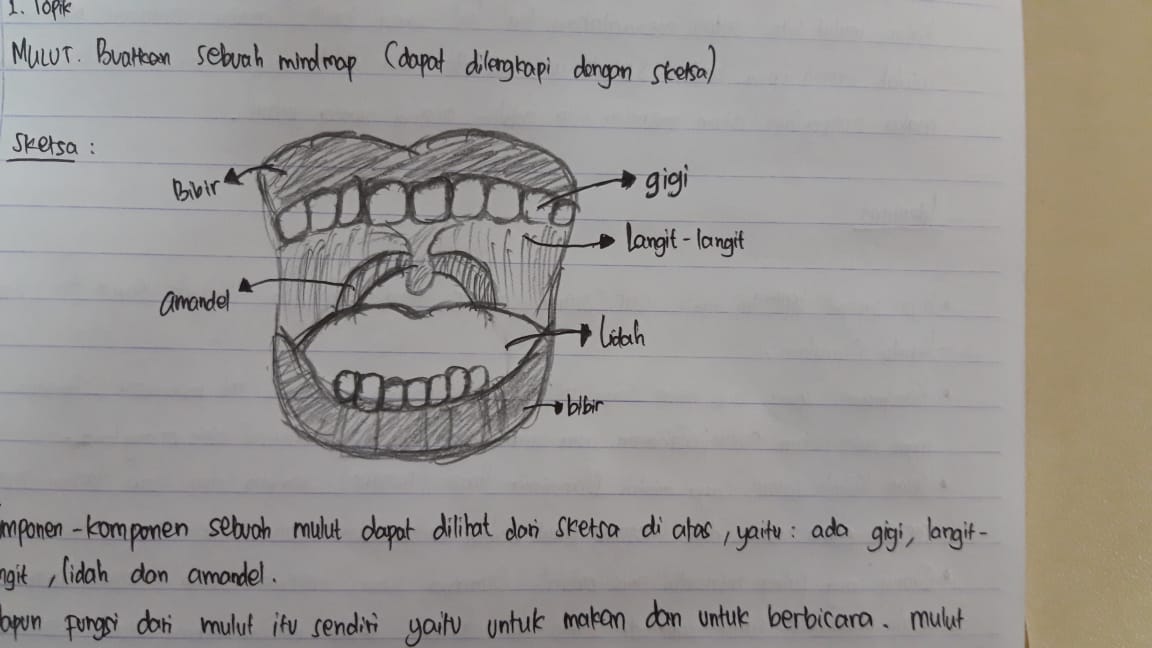 1. Topik
MULUT. Buatkan sebuah mindmap (dapat dilengkapi dengan sketsa)
Sketsa :
Bibir
gigi
Langit-langit
amandel
Lidah
bibir
mponen-komponen sebuah mulut dapat dilihat dari sketsa di atas, yaitu : ada gigi, langit-
ngit, lidah dan amandel.
dapun fungsi dari mulut itu sendiri yaitu untuk makan dan untuk berbicara. mulut